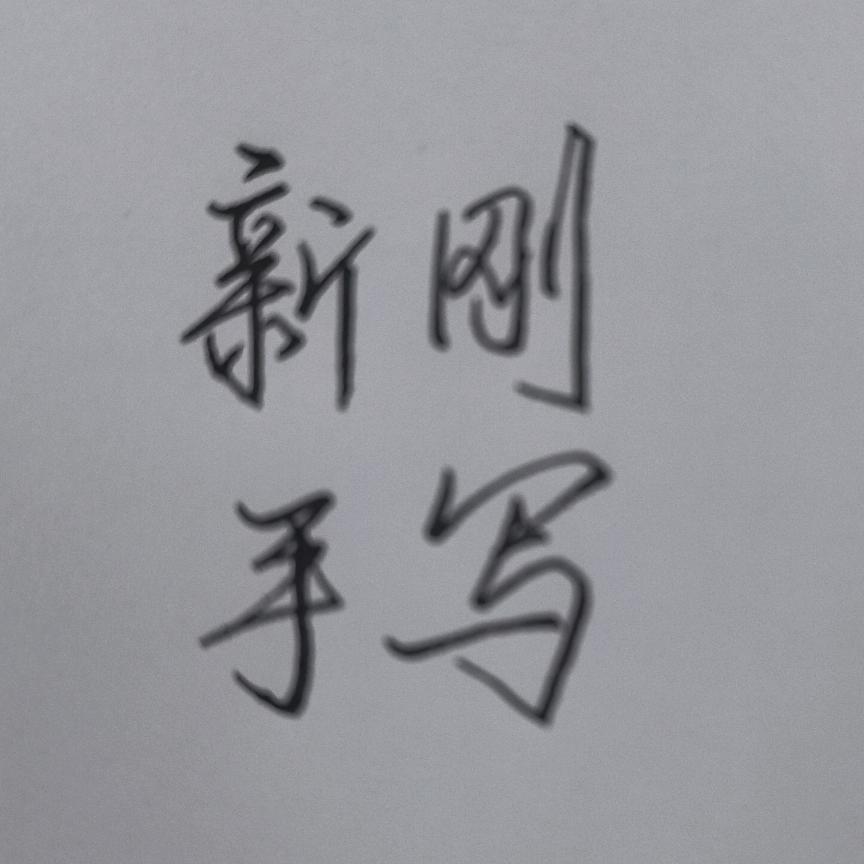 新刚
手写